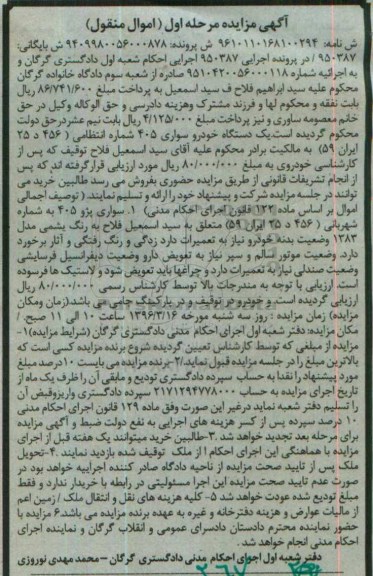 آگهی مزایده مرحله اول (اموال منقول)
ش نامه: ۹۶۱۰۱۱۰۱۶۸۱۰۰۲۹۴ ش پرونده: ۹۴۰۹۹۸۰۰۵۶۰۰۰۸۷۸ ش بایگانی:
۹۵۰۳۸۷ / در پرونده اجرایی ۹۵۰۳۸۷ اجرایی احکام شعبه اول دادگستری گرگان و
به اجرائیه شماره ۹۵۱۰۴۲۰۰۵۶۰۰۰۱۱۸ صادره از شعبه سوم دادگاه خانواده گرگان
محکوم علیه سید ابراهیم فلاح ف سید اسمعیل به پرداخت مبلغ ۸۶/۷۴۱/۶۰۰ ریال
بابت نفقه و محکوم لها و فرزند مشترک وهزینه دادرسی و حق الوکاله وکیل در حق
خانم معصومه ساوری و نیز پرداخت مبلغ ۴/۱۲۵/۰۰۰ ریال بابت نیم عشر درحق دولت
محکوم گردیده است.یک دستگاه خودرو سواری ۴۰۵ شماره انتظامی ( ۴۵۶ د ۲۵
ایران ۵۹) به مالکیت برادر محکوم علیه آقای سید اسمعیل فلاح توقیف که پس از
کارشناسی خودروی به مبلغ ۸۰/۰۰۰/۰۰۰ ریال مورد ارزیابی قرارگرفته اند که پس
از انجام تشریفات قانونی از طریق مزایده حضوری بفروش می رسد طالبین خرید می
توانند در جلسه مزایده شرکت و پیشنهاد خود را ارائه و تسلیم نمایند. ( توصیف اجمالی
اموال بر اساس ماده ۱۲۲ قانون اجرای احکام مدنی) ۱. سواری پژو ۴۰۵ به شماره
شهربانی ( ۴۵۶ د ۲۵ ایران ۵۹) متعلق به سید اسمعیل فلاح به رنگ یشمی مدل
۱۳۸۳ وضعیت بدنه خودرو نیاز به تعمیرات دارد زدگی و رنگ رفتگی و آثار برخورد
دارد. وضعیت موتور سالم و سپر نیاز به تعویض دارو وضعیت دیفرانسیل فرسایشی
وضعیت صندلی نیاز به تعمیرات دارد و چراغها باید تعویض شود و لاستیک ها فرسوده
است. ارزیابی با توجه به مندرجات بالا توسط کارشناس رسمی ۸۰/۰۰۰/۰۰۰ ریال
ارزیابی گردیده است. و خودرو در توقیف و در پارکینگ جامی می باشد(زمان ومکان
مزایده) زمان مزایده : روز سه شنبه مورخه ۱۳۹۶/۳/۱۶ ساعت ۱۰ الی ۱۱ صبح. /
مکان مزایده: دفتر شعبه اول اجرای احکام مدنی دادگستری گرگان (شرایط مزایده)۱-
مزایده از مبلغی که توسط کارشناس تعیین گردیده شروع برنده مزایده کسی است که
بالاترین مبلغ را در جلسه مزایده قبول نماید./۲-برنده مزایده می بایست ۱۰درصد مبلغ
مورد پیشنهاد را نقدا به حساب سپرده دادگستری تودیع و مابقی آن را ظرف یک ماه از
تاریخ اجرای مزایده به حساب ۲۱۷۱۲۹۴۷۷۸۰۰۰ سپرده دادگستری واریزوقبض آن
را تسلیم دفتر شعبه نماید درغیر این صورت وفق ماده ۱۲۹ قانون اجرای احکام مدنی
۱۰ درصد سپرده پس از کسر هزینه های اجرایی به نفع دولت ضبط و آگهی مزایده
برای مرحله بعد تجدید خواهد شد. ۳-طالبین خرید میتوانند یک هفته قبل از اجرای
مزایده با هماهنگی این اجرای احکام ا از ملک توقیف شده بازدید نمایند .۴-تحویل
ملک پس از تایید صحت مزایده از ناحیه دادگاه صادر کننده اجراییه خواهد بود در
صورت عدم تایید صحت مزایده این اجرا مسئولیتی در رابطه با خریدار ندارد و فقط
مبلغ تودیع شده عودت خواهد شد ۵- کلیه هزینه های نقل و انتقال ملک / زمین اعم
از مالیات عوارض و هزینه دفترخانه و غیره به عهده برنده مزایده می باشد.۶ مزایده با
حضور نماینده محترم دادستان دادسرای عمومی و انقلاب گرگان و نماینده اجرای
احکام مدنی انجام خواهد شد .
دفتر شعبه اول اجرای احکام مدنی دادگستری گرگان – محمد مهدی نوروزی